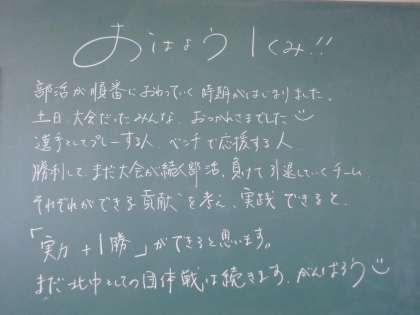 おはよう 1くみ!!
部活が順番におわっていく時期がはじまりました。
土日 大会だったみんな、おつかれさまでした
選手としてプレーする人、ベンチで応援する人
勝利して、まだ大会が続く部活、負けて引退していくチーム
それぞれができる貢献を考え、実践できると、
「実力+1勝」ができると思います。
まだ北中としての団体戦は続きます、がんばろう